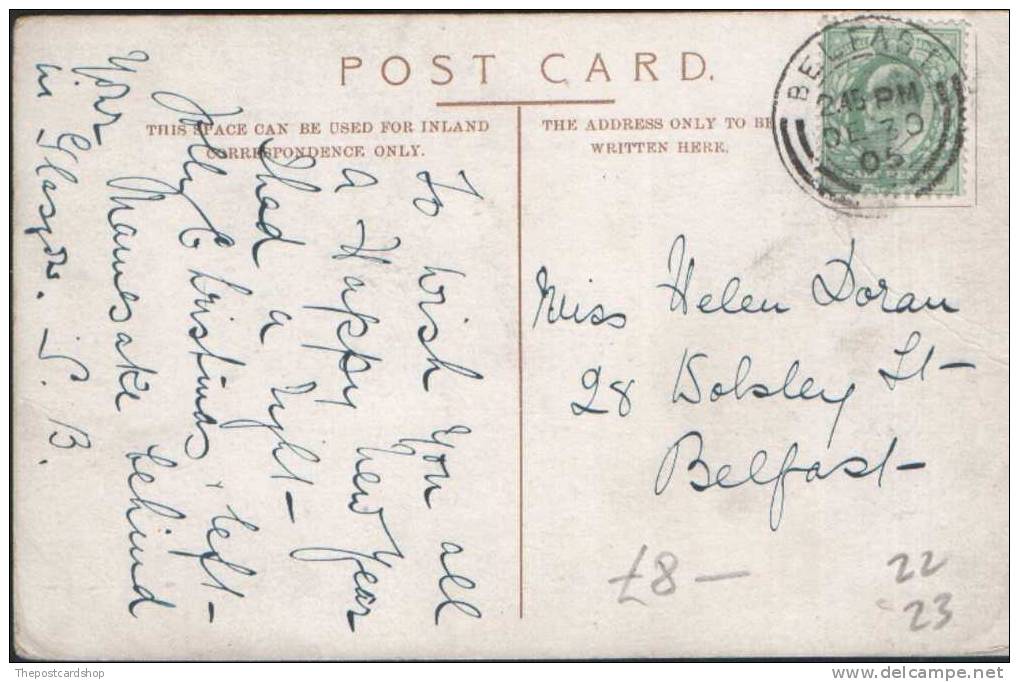 POST CARD.
THIS SPACE CAN BE USED FOR INLAND
CORRESPONDENCE ONLY.
THE ADDRESS ONLY TO BE
WRITTEN HERE.
BELFAST
2.45 PM
DE 30
05
To wish you all
a Happy New Year
Had a right-
Jolly Christmas, left-
your Mamesake behind
in Glasgow. S. B.
Miss Helen Doran
28 Wolsley St-
Belfast-
£8-
22
23
Thepostcardshop
www.delcampe.net